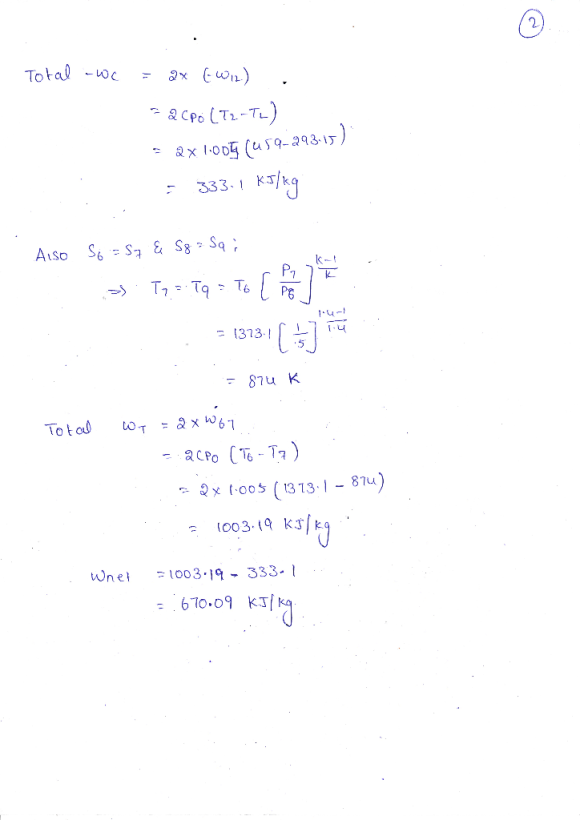 2
Total -wc = 2x (-w12)
= 2CPo (T2-T1)
= 2x 1.005 (459-293.15)
= 333.1 KJ/kg
Also S6 = S7 & S8 = S9 ;
=> T7 = T9 = T6 [P7/P6]^(K-1/K)
= 1373.1 [1/.5]^(1.4-1/1.4)
= 874 K
Total WT = 2 x W67
= 2CPO (T6 - T7)
= 2x 1.005 (1373.1 - 874)
= 1003.19 KJ/kg
Wnet = 1003.19 - 333.1
= 670.09 KJ/kg